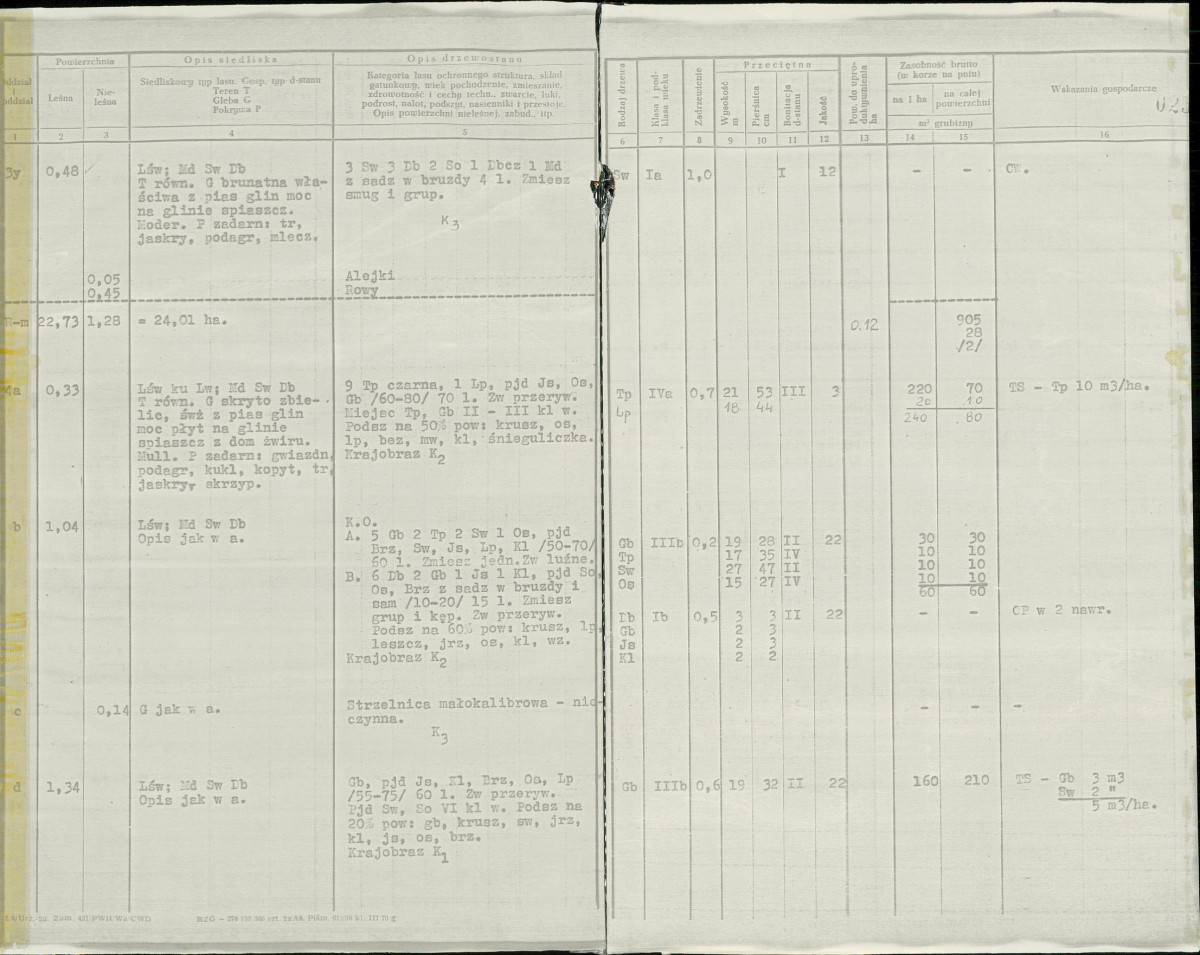 Powierzchnia
Opis siedliska
Opis drzewostanu
oddział i oddział
Leśna
Nie-leśna
Siedliskowy typ lasu. Gosp. typ d-stanu
Teren T
Gleba G
Pokrywa P
Kategoria lasu ochronnego struktura, skład
gatunkowy, wiek pochodzenie, zmieszanie,
zdrowotność i cechy techn., zwarcie, luki,
podrost, nalot, podszyt, nasienniki i przestoje.
Opis powierzchni nieleśnej, zabud., itp.
1 2 3 4 5
Rodzaj drzewa
Klasa i pod-klasa wieku
Zadrzewienie
Przeciętna
Wysokość m
Pierśnica cm
Bonitacja d-stanu
Jakość
Pow. do upro-duktywnienia ha
Zasobność brutto
(w korze na pniu)
na 1 ha
na całej powierzchni
m³ grubizny
Wskazania gospodarcze
6 7 8 9 10 11 12 13 14 15 16
3y 0,48 Lśw; Md Sw Db 3 Sw 3 Db 2 So 1 Dbcz 1 Md Sw Ia 1,0 I 12 - - CW.
T równ. G brunatna wła- z sadz w bruzdy 4 l. Zmiesz
ściwa z pias glin moc smug i grup.
na glinie spiaszcz.
Moder. P zadarn: tr, K3
jaskry, podagr, mlecz.
0,05 Alejki
0,45 Rowy
R-m 22,73 1,28 = 24,01 ha. 0.12 905
28
/2/
4a 0,33 Lśw ku Lw; Md Sw Db 9 Tp czarna, 1 Lp, pjd Js, Os, Tp IVa 0,7 21 53 III 3 220 70 TS - Tp 10 m3/ha.
T równ. G skryto zbie- Gb /60-80/ 70 l. Zw przeryw. Lp 18 44 20 10
lic, śwż z pias glin Miejsc Tp, Gb II - III kl w. 240 80
moc płyt na glinie Podsz na 50% pow: krusz, os,
spiaszcz z dom żwiru. lp, bez, mw, kl, śnieguliczka.
Mull. P zadarn: gwiazdn, Krajobraz K2
podagr, kukl, kopyt, tr,
jaskry, skrzyp.
b 1,04 Lśw; Md Sw Db K.O.
Opis jak w a. A. 5 Gb 2 Tp 2 Sw 1 Os, pjd Gb IIIb 0,2 19 28 II 22 30 30
Brz, Sw, Js, Lp, Kl /50-70/ Tp 17 35 IV 10 10
60 l. Zmiesz jedn. Zw luźne. Sw 27 47 II 10 10
B. 6 Db 2 Gb 1 Js 1 Kl, pjd So, Os 15 27 IV 10 10
Os, Brz z sadz w bruzdy i 60 60
sam /10-20/ 15 l. Zmiesz
grup i kęp. Zw przeryw. Db Ib 0,5 3 3 II 22 - - CP w 2 nawr.
Podsz na 60% pow: krusz, lp, Gb 2 3
leszcz, jrz, os, kl, wz. Js 2 3
Krajobraz K2 Kl 2 2
c 0,14 G jak w a. Strzelnica małokalibrowa - nie- - - -
czynna.
K3
d 1,34 Lśw; Md Sw Db Gb, pjd Js, Kl, Brz, Os, Lp Gb IIIb 0,6 19 32 II 22 160 210 TS - Gb 3 m3
Opis jak w a. /55-75/ 60 l. Zw przeryw. Sw 2 "
Pjd Sw, So VI kl w. Podsz na 5 m3/ha.
20% pow: gb, krusz, sw, jrz,
kl, js, os, brz.
Krajobraz K1